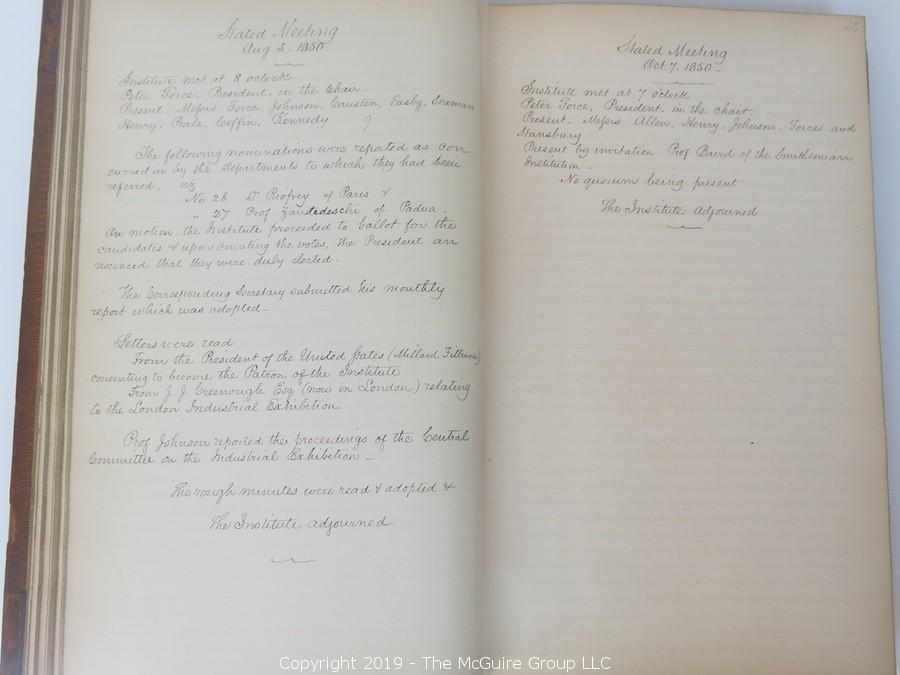 Stated Meeting
Aug 5. 1850
Institute met at 8 oclock
Peter Force, President, in the Chair -
Present - Messrs Force, Johnson, Causten, Easby, Seaman
Henry, Peale, Coffin, Kennedy 9
The following nominations were reported as con
curred in by the Departments to which they had been
referred, viz
No 26 Dr Riofrey of Paris &
" 27 Prof Zandedeschi of Padua -
On motion - the Institute proceeded to ballot for the
candidates & upon counting the votes, the President an
nounced that they were duly elected.
The Corresponding Secretary submitted his monthly
report which was adopted -
Letters were read
From the President of the United States (Millard Fillmore)
consenting to become the Patron of the Institute
From J. J. Greenough Esq (now in London) relating
to the London Industrial Exhibition.
Prof Johnson reported the proceedings of the Central
Committee on the Industrial Exhibition -
The rough minutes were read & adopted &
The Institute adjourned
Stated Meeting
Oct 7. 1850 -
Institute met at 7 oclock
Peter Force, President, in the chair
Present - Messrs Allen, Henry, Johnson, Force and
Stansbury
Present by invitation Prof Baird of the Smithsonian
Institution -
No quorum being present
The Institute adjourned
Copyright 2019 - The McGuire Group LLC